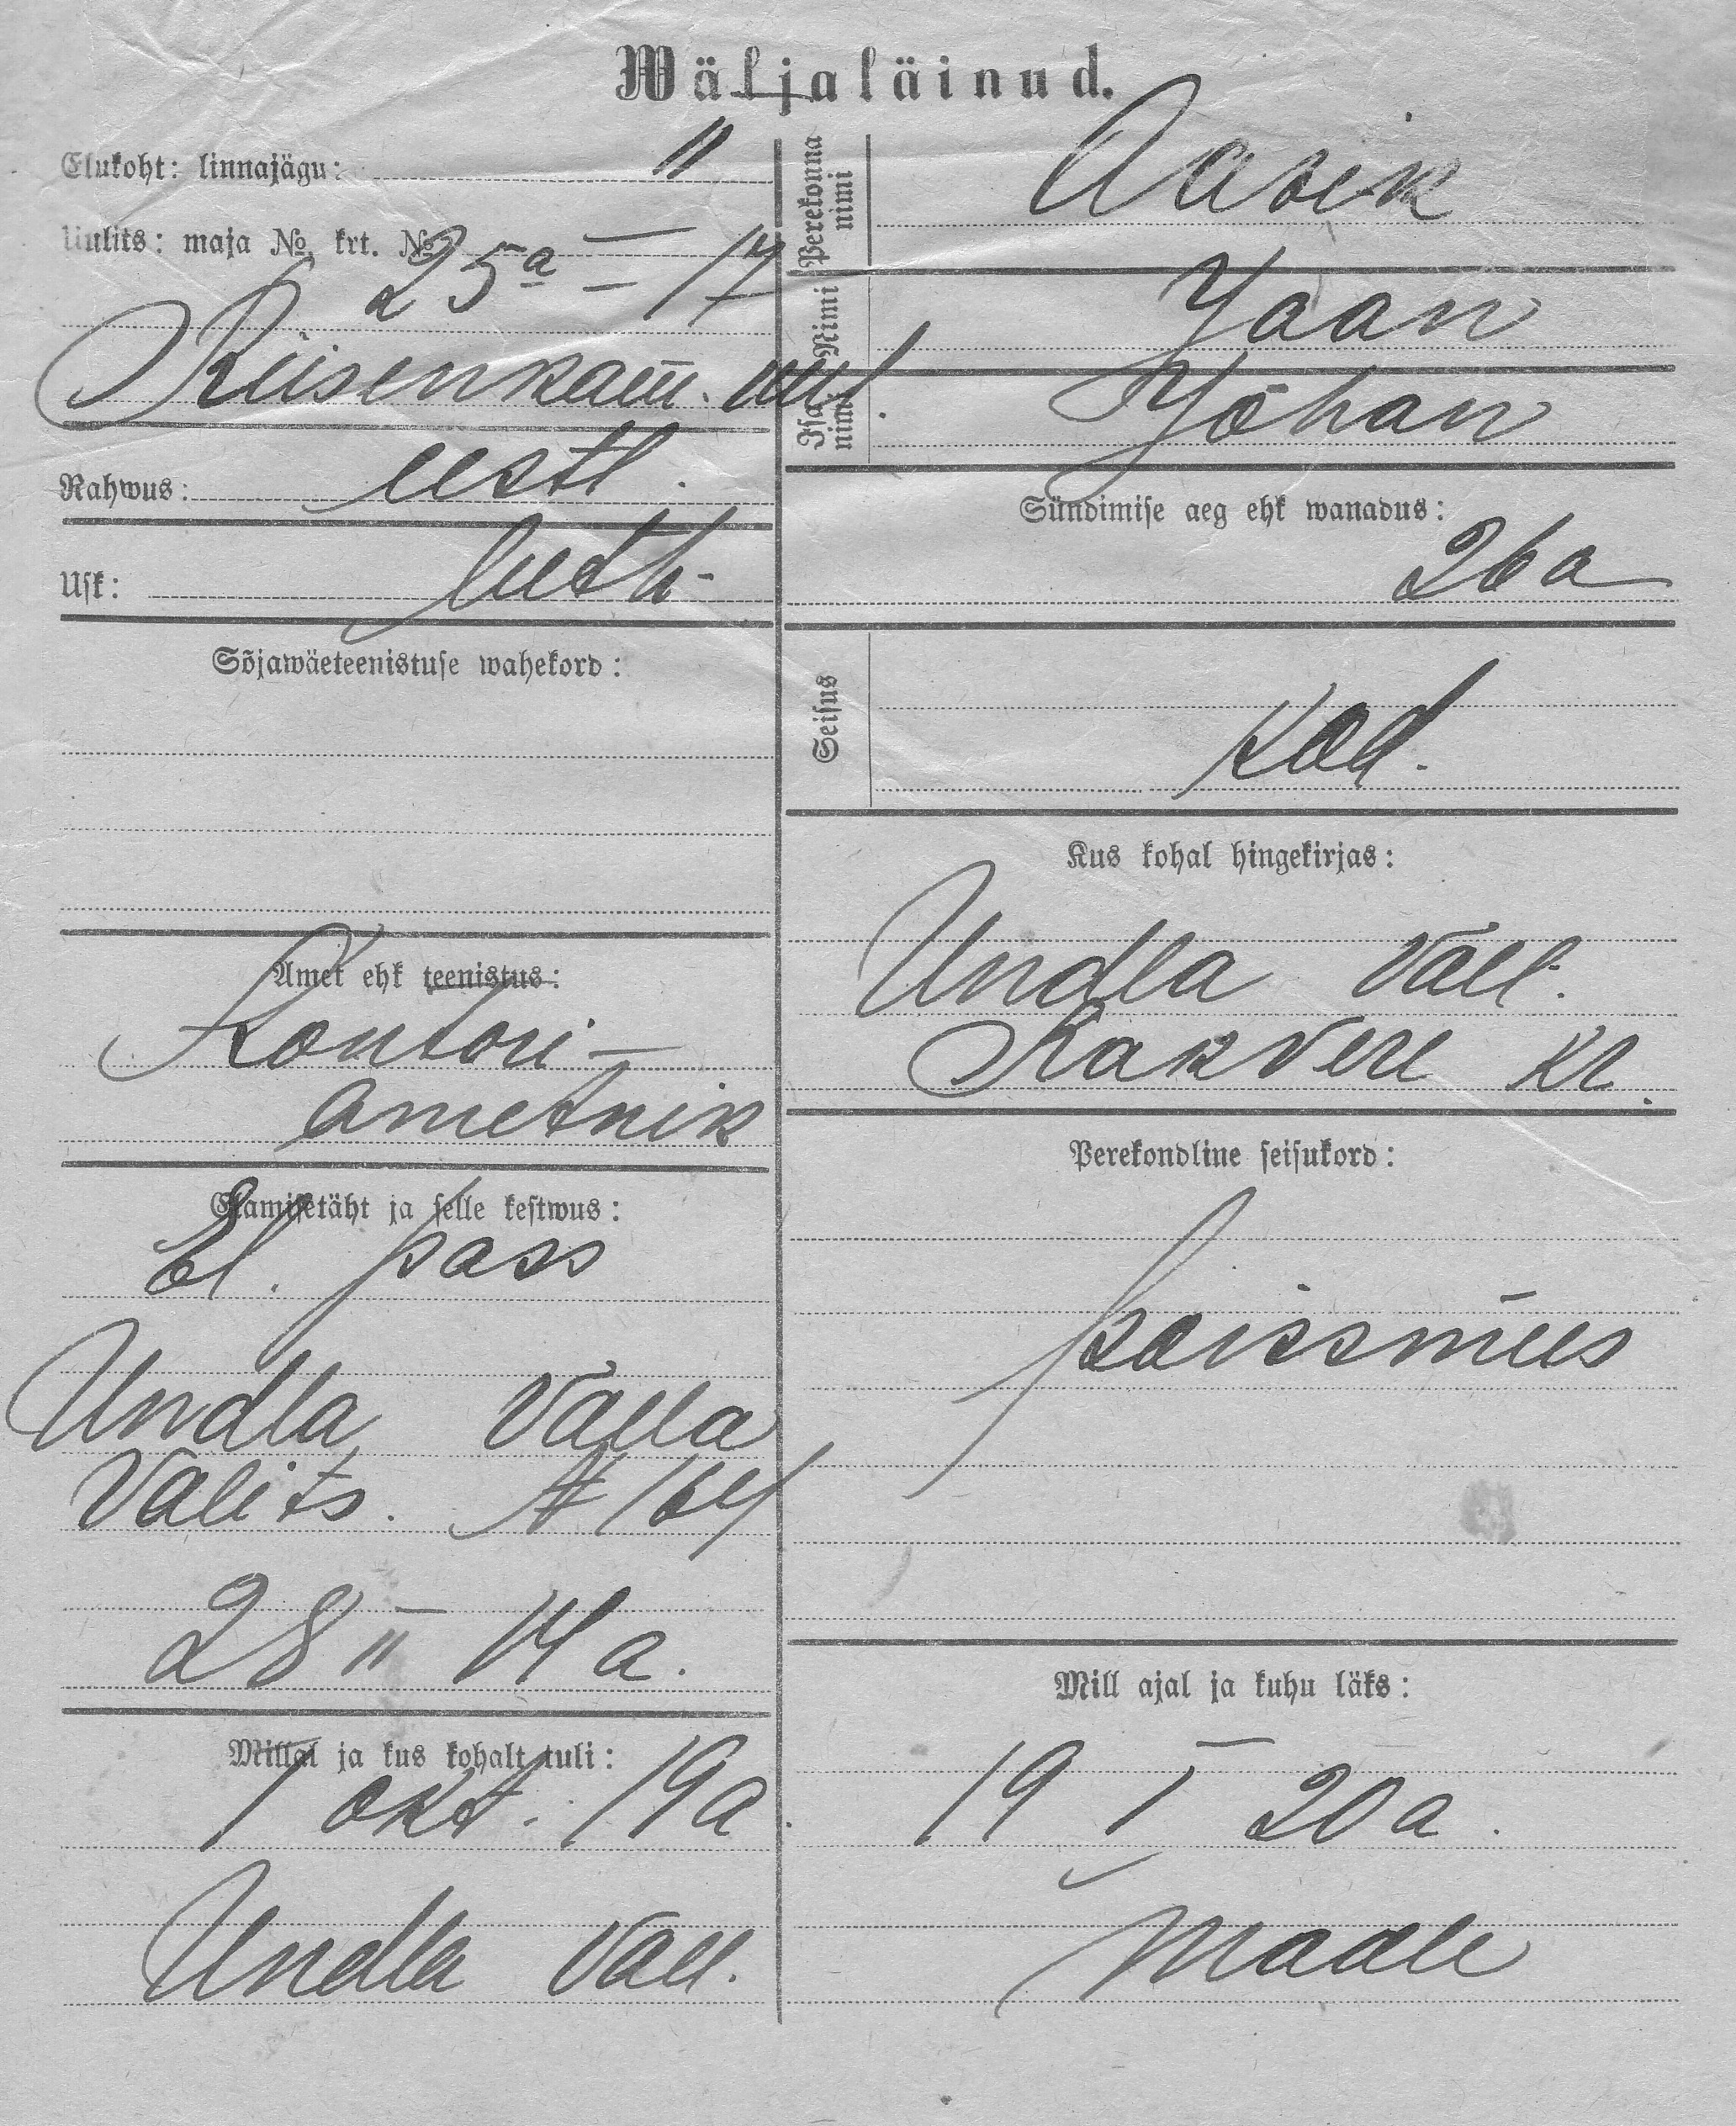 Wäljaläinud.
Elukoht: linnajägu: II
Uulits: maja № krt. №
25a – 17
Riisenkam. uul.
Rahwus: eestl.
Usk: luth.
Sõjawäeteenistuse wahekord:
Amet ehk teenistus:
Kontori-
ametnik
Elamisetäht ja selle kestwus:
El. pass
Undla Valla
Valits. № 164
28 II 14 a.
Millal ja kus kohalt tuli:
1 okt. 19 a.
Undla Vall.
Perekonna nimi Aasik
Nimi Jaan
Isa nimi Johan
Sündimise aeg ehk wanadus:
26 a
Seisus kod.
Kus kohal hingekirjas:
Undla Vall.
Rakvere Kr.
Perekondline seisukord:
poissmees
Mill ajal ja kuhu läks:
19 I 20 a.
Maale